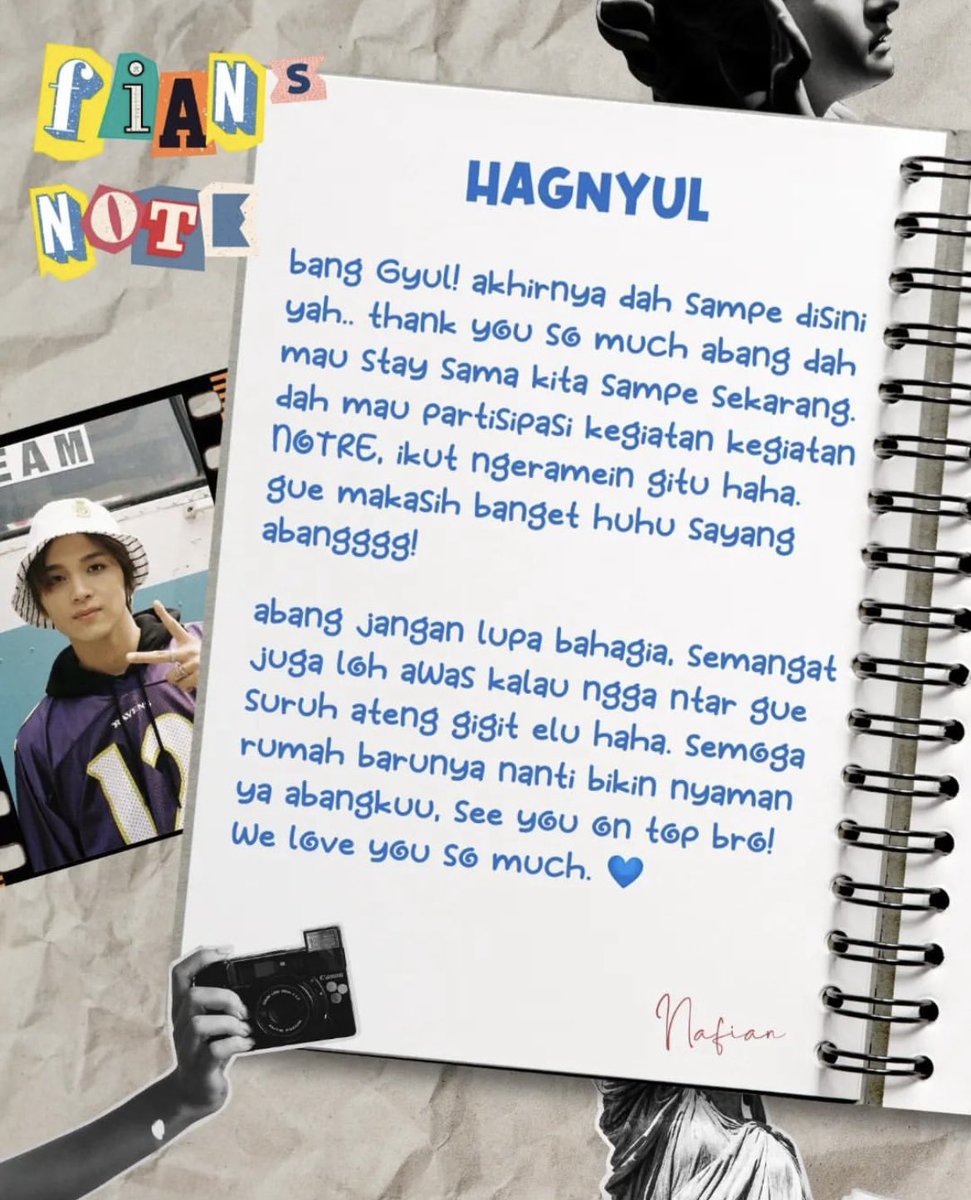 fiAN s
NOTE
EAM
RAVENS
12
HAGNYUL
bang Gyul! akhirnya dah sampe disini
yah.. thank you so much abang dah
mau stay sama kita sampe sekarang.
dah mau partisipasi kegiatan kegiatan
NOTRE, ikut ngeramein gitu haha.
gue makasih banget huhu sayang
abangggg!
abang jangan lupa bahagia, semangat
juga loh awas kalau ngga ntar gue
suruh ateng gigit elu haha. semoga
rumah barunya nanti bikin nyaman
ya abangkuu, see you on top bro!
We love you so much. 💙
Canon
Nafian